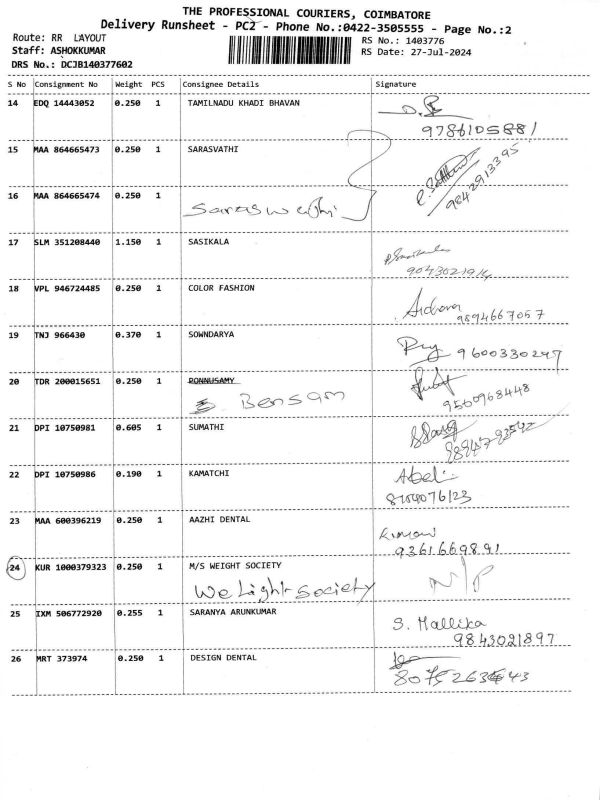 THE PROFESSIONAL COURIERS, COIMBATORE
Delivery Runsheet - PC2 - Phone No.:0422-3505555 - Page No.:2
Route: RR LAYOUT
RS No.: 1403776
Staff: ASHOKKUMAR
RS Date: 27-Jul-2024
DRS No.: DCJB140377602
S No Consignment No Weight PCS Consignee Details Signature
14 EDQ 14443052 0.250 1 TAMILNADU KHADI BHAVAN
9786105881
15 MAA 864665473 0.250 1 SARASVATHI
9842913395
16 MAA 864665474 0.250 1
Saraswathi
17 SLM 351208440 1.150 1 SASIKALA
18 VPL 946724485 0.250 1 COLOR FASHION
9894667057
19 TNJ 966430 0.370 1 SOWNDARYA
9600330247
20 TDR 200015651 0.250 1 PONNUSAMY
Bensam
9560968448
21 DPI 10750981 0.605 1 SUMATHI
22 DPI 10750986 0.190 1 KAMATCHI
23 MAA 600396219 0.250 1 AAZHI DENTAL
Kumar
9361669891
24 KUR 1000379323 0.250 1 M/S WEIGHT SOCIETY
We Light Society N/P
25 IXM 506772920 0.255 1 SARANYA ARUNKUMAR
S. Mallika
9843021897
26 MRT 373974 0.250 1 DESIGN DENTAL